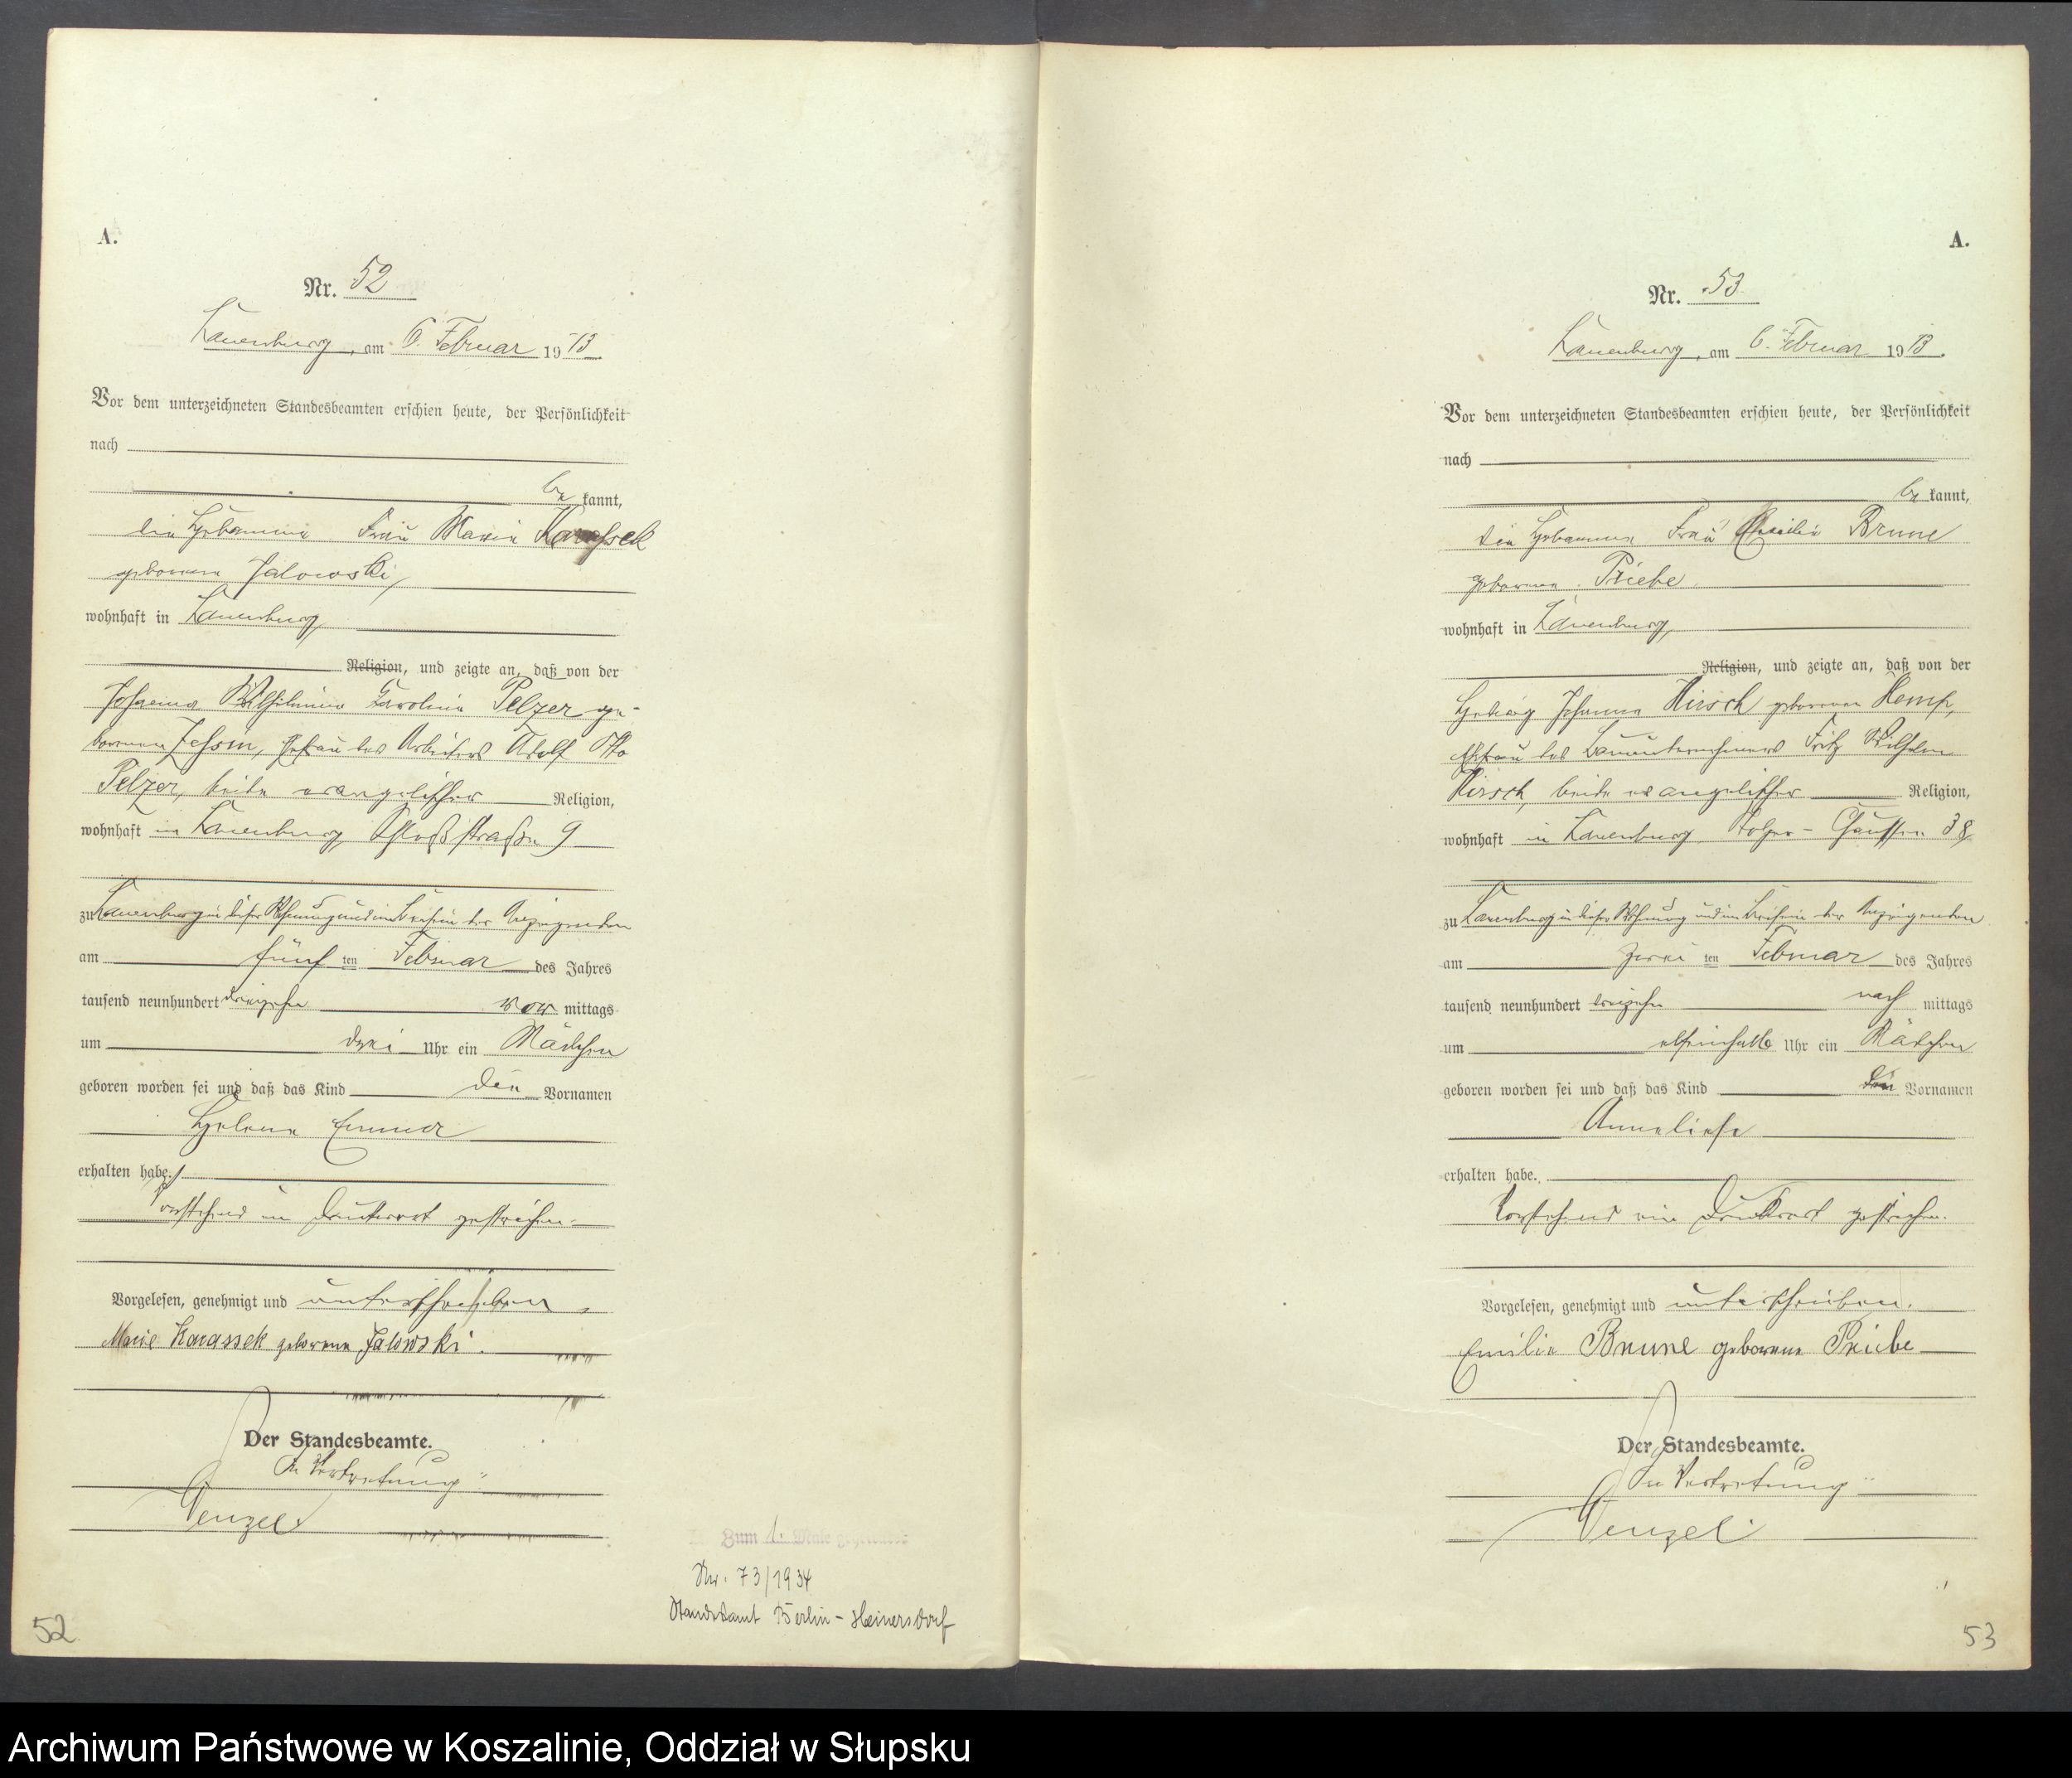 A.
Nr. 52
Lauenburg, am 6. Februar 1913.
Vor dem unterzeichneten Standesbeamten erschien heute, der Persönlichkeit
nach
be kannt,
die Hebamme Frau Marie Karassek
geborene Jalowski,
wohnhaft in Lauenburg,
Religion, und zeigte an, daß von der
Johanna Wilhelmine Karoline Pelzer ge-
borenen Jeschin, Ehefrau des Arbeiters Adolf Otto
Pelzer, beide evangelischer Religion,
wohnhaft in Lauenburg, Schloßstraße 9
zu Lauenburg in dieser Wohnung und im Beisein der Anzeigenden
am fünf ten Februar des Jahres
tausend neunhundert dreizehn vor mittags
um drei Uhr ein Mädchen
geboren worden sei und daß das Kind die Vornamen
Helene Emma
erhalten habe.
Vorstehend ein Druckwort gestrichen.
Vorgelesen, genehmigt und unterschrieben.
Marie Karassek geborene Jalowski.
Der Standesbeamte.
In Vertretung
Wenzel
Zum 1. Male geheiratet
Nr. 73/1934
Standesamt Berlin-Heinersdorf
52
A.
Nr. 53
Lauenburg, am 6. Februar 1913.
Vor dem unterzeichneten Standesbeamten erschien heute, der Persönlichkeit
nach
be kannt,
die Hebamme Frau Emilie Brune
geborene Priebe
wohnhaft in Lauenburg,
Religion, und zeigte an, daß von der
Hedwig Johanna Hirsch geborenen Kemp,
Ehefrau des Bauunternehmers Fritz Wilhelm
Hirsch, beide evangelischer Religion,
wohnhaft in Lauenburg Stolper-Chaussee 38,
zu Lauenburg in dieser Wohnung und im Beisein der Anzeigenden
am zwei ten Februar des Jahres
tausend neunhundert dreizehn nach mittags
um elfeinhalb Uhr ein Mädchen
geboren worden sei und daß das Kind den Vornamen
Anneliese
erhalten habe.
Vorstehend ein Druckwort gestrichen.
Vorgelesen, genehmigt und unterschrieben.
Emilie Brune geborene Priebe
Der Standesbeamte.
In Vertretung
Wenzel
53
Archiwum Państwowe w Koszalinie, Oddział w Słupsku